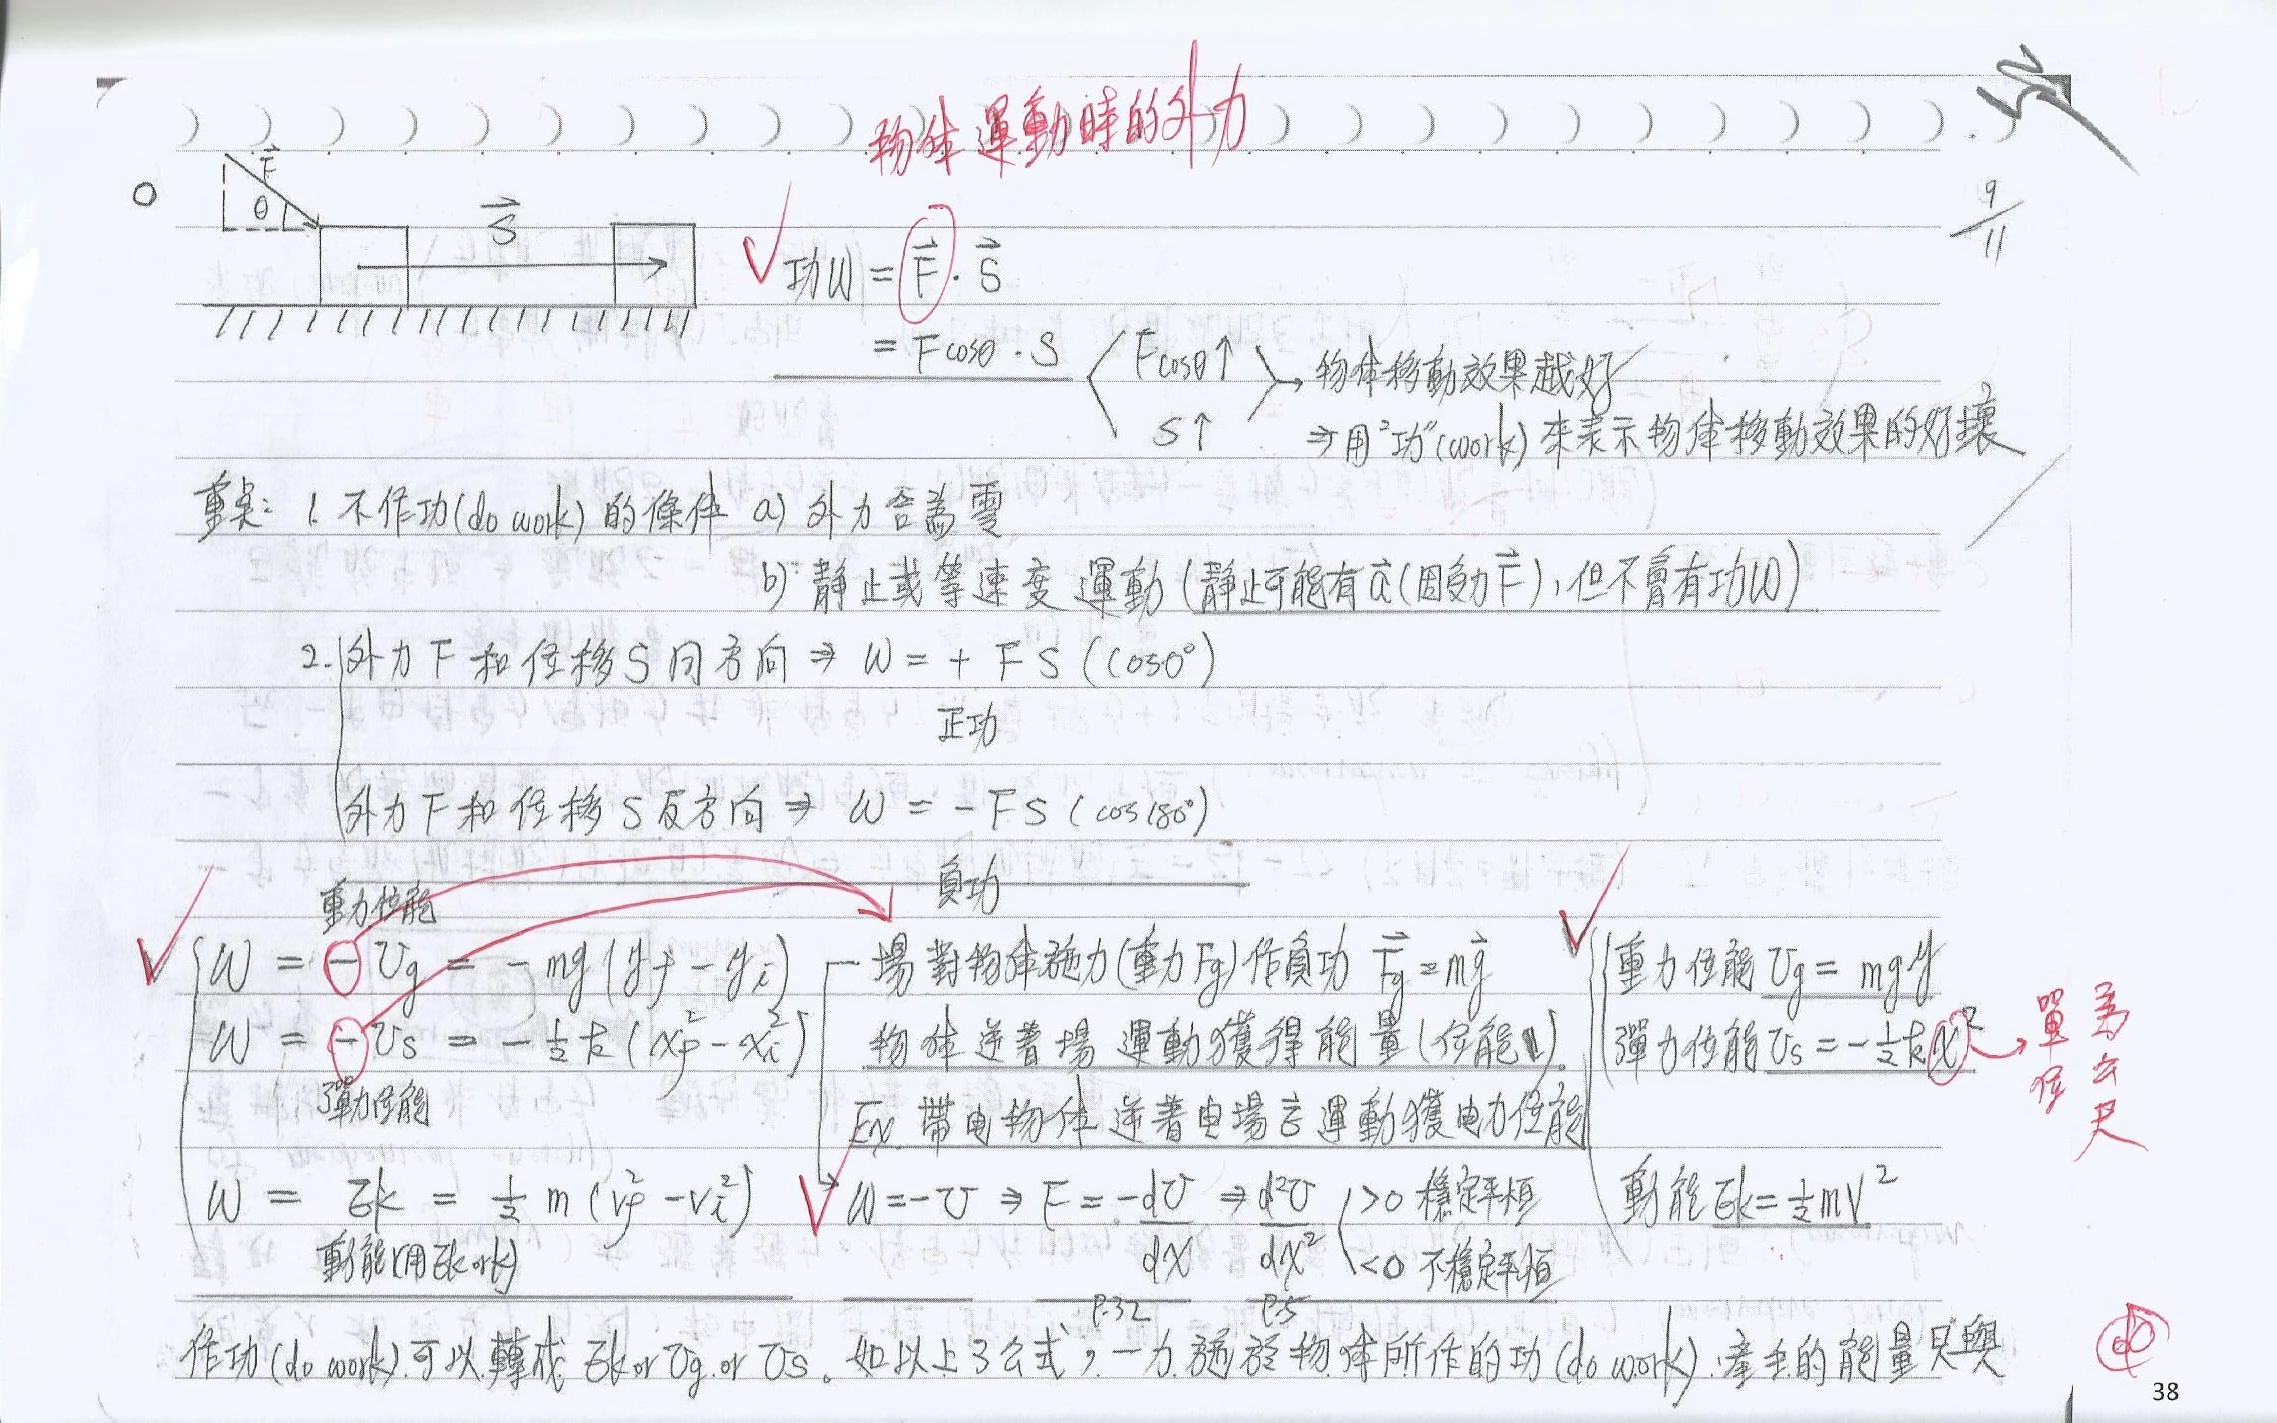 物体運動時的外力
9/11
F⃗
θ
S⃗
功W = F⃗ · S⃗
= Fcosθ · S
Fcosθ↑
S↑
→ 物体移動效果越好
⇒ 用"功"(work) 來表示物体移動效果的好壞
重点: 1. 不作功(do work) 的條件 a) 外力合為零
b) 靜止或等速度運動 (靜止可能有a⃗(因受力F⃗), 但不會有功W)
2. 外力F和位移S同方向 ⇒ W = + FS (cos0°)
正功
外力F和位移S反方向 ⇒ W = - FS (cos180°)
負功
重力位能
W = - Ug = - mg (yf - yi)
W = - Us = - ½k (xf² - xi²)
彈力位能
W = Ek = ½ m (vf² - vi²)
動能(用Ek or k)
場對物体施力(重力Fg)作負功 F⃗g = mg⃗
物体逆著場運動獲得能量(位能U).
Ex. 帶电物体逆著电場去運動獲电力位能
W = -U ⇒ F = -dU/dx ⇒ d²U/dx² >0 穩定平恒
<0 不穩定平恒
P.32 P.5
重力位能 Ug = mgy
彈力位能 Us = -½kx²
單位為公尺
動能 Ek = ½mv²
作功(do work) 可以轉成 Ek or Ug or Us。如以上3公式, 一力施於物体所作的功(do work) 產生的能量只與
38